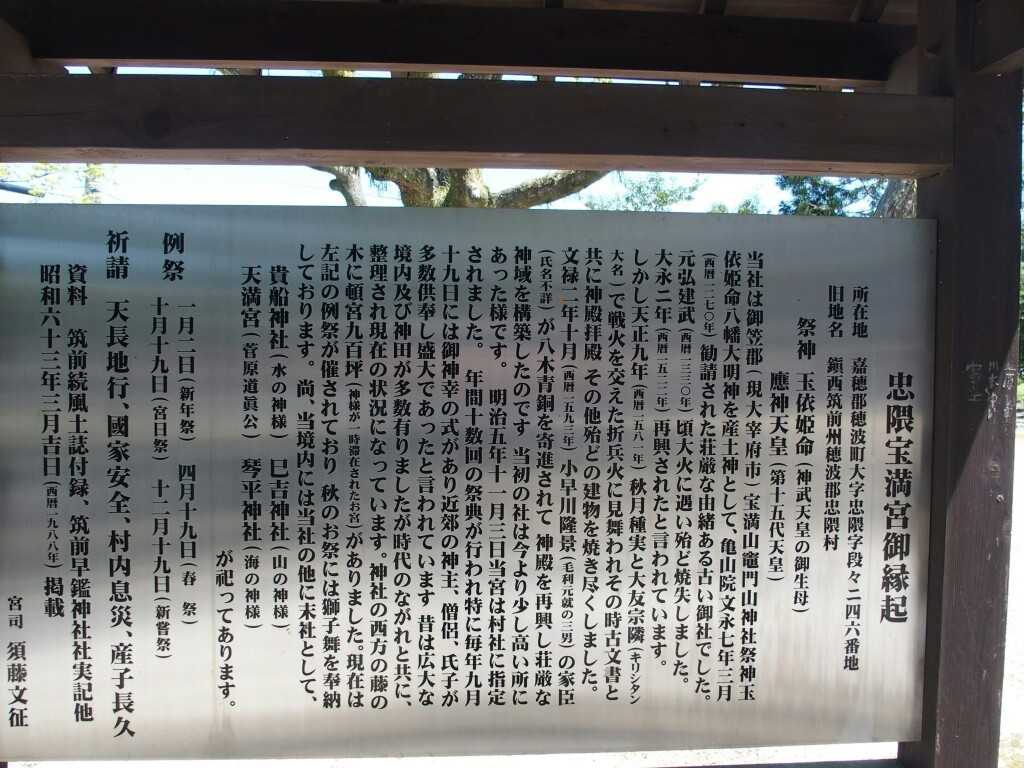 忠隈宝満宮御縁起
所在地 嘉穂郡穂波町大字忠隈字段々二四六番地
旧地名 鎮西筑前州穂波郡忠隈村
祭神 玉依姫命(神武天皇の御生母)
應神天皇(第十五代天皇)
当社は御笠郡(現大宰府市)宝満山竈門山神社祭神玉
依姫命八幡大明神を産土神として、亀山院文永七年三月
(西暦一二七〇年)勧請された荘厳な由緒ある古い御社でした。
元弘建武(西暦一三三〇年)頃大火に遇い殆ど焼失しました。
大永二年(西暦一五二二年)再興されたと言われています。
しかし天正九年(西暦一五八一年)秋月種実と大友宗隣(キリシタン
大名)で戦火を交えた折兵火に見舞われその時古文書と
共に神殿拝殿 その他殆どの建物を焼き尽くしました。
文禄二年十月(西暦一五九三年)小早川隆景(毛利元就の三男)の家臣
(氏名不詳)が八木青銅を寄進されて 神殿を再興し荘厳な
神域を構築したのです 当初の社は今より少し高い所に
あった様です。 明治五年十一月三日当宮は村社に指定
されました。 年間十数回の祭典が行われ特に毎年九月
十九日には御神幸の式があり近郊の神主、僧侶、氏子が
多数供奉し盛大であったと言われています 昔は広大な
境内及び神田が多数有りましたが時代のながれと共に、
整理され現在の状況になっています。神社の西方の藤の
木に頓宮九百坪(神様が一時滞在されたお宮)がありました。現在は
左記の例祭が催されており 秋のお祭には獅子舞を奉納
しております。尚、当境内には当社の他に末社として、
貴船神社(水の神様) 巳吉神社(山の神様)
天満宮(菅原道眞公) 琴平神社(海の神様)
が祀ってあります。
例祭 一月二日(新年祭) 四月十九日(春 祭)
十月十九日(宮日祭) 十二月十九日(新嘗祭)
祈請 天長地行、國家安全、村内息災、産子長久
資料 筑前続風土誌付録、筑前早鑑神社社実記他
昭和六十三年三月吉日(西暦一九八八年)掲載
宮司 須藤文征